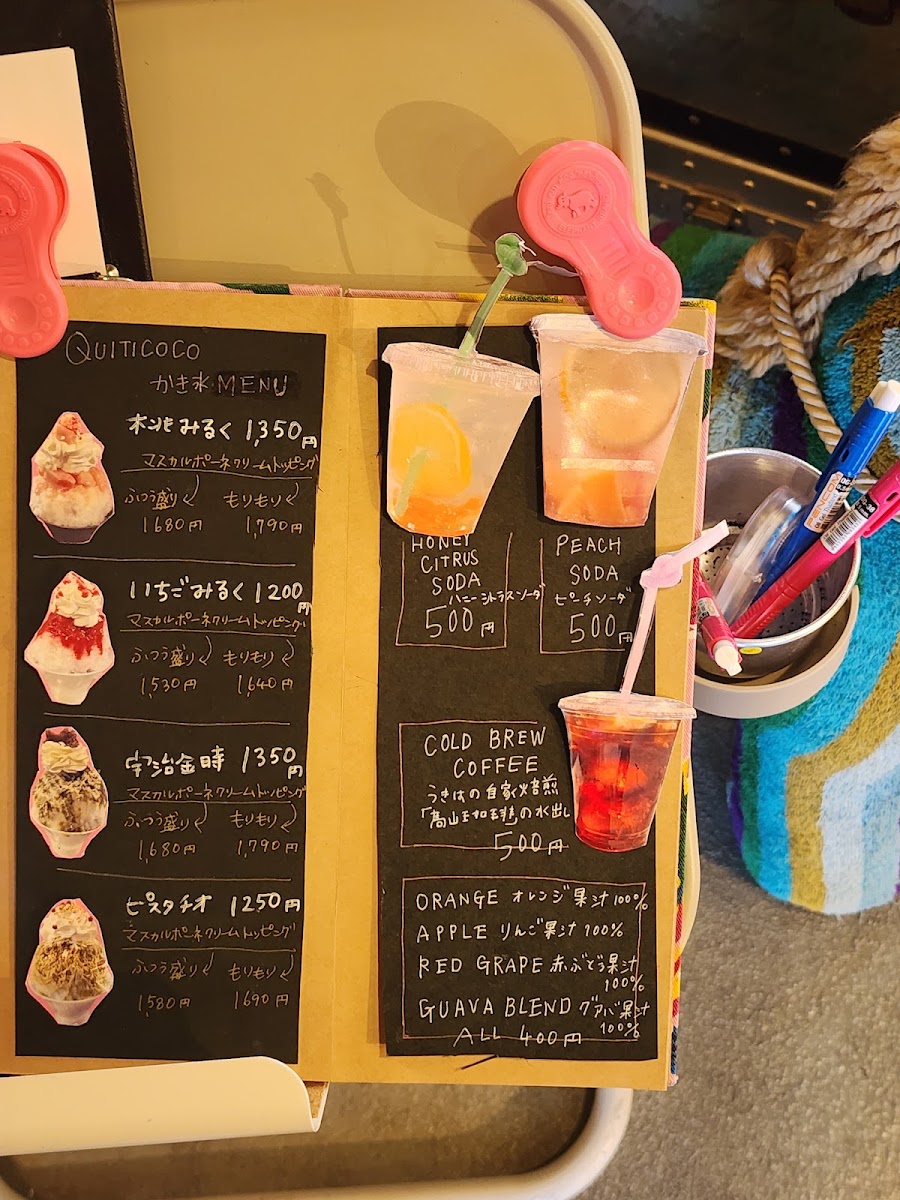 QUITICOCO
かき氷 MENU
みるく 1,350円
マスカルポーネクリームトッピング
ふつう盛り もりもり
1680円 1,790円
いちごみるく 1200円
マスカルポーネクリームトッピング
ふつう盛り もりもり
1,530円 1,640円
宇治金時 1350円
マスカルポーネクリームトッピング
ふつう盛り もりもり
1,680円 1,790円
ピスタチオ 1250円
マスカルポーネクリームトッピング
ふつう盛り もりもり
1580円 1690円
HONEY
CITRUS
SODA
ハニーシトラスソーダ
500円
PEACH
SODA
ピーチソーダ
500円
COLD BREW
COFFEE
うきはの自家焙煎
「高山珈琲」の水出し
500円
ORANGE オレンジ果汁100%
APPLE りんご果汁100%
RED GRAPE 赤ぶどう果汁
100%
GUAVA BLEND グアバ果汁
100%
ALL 400円